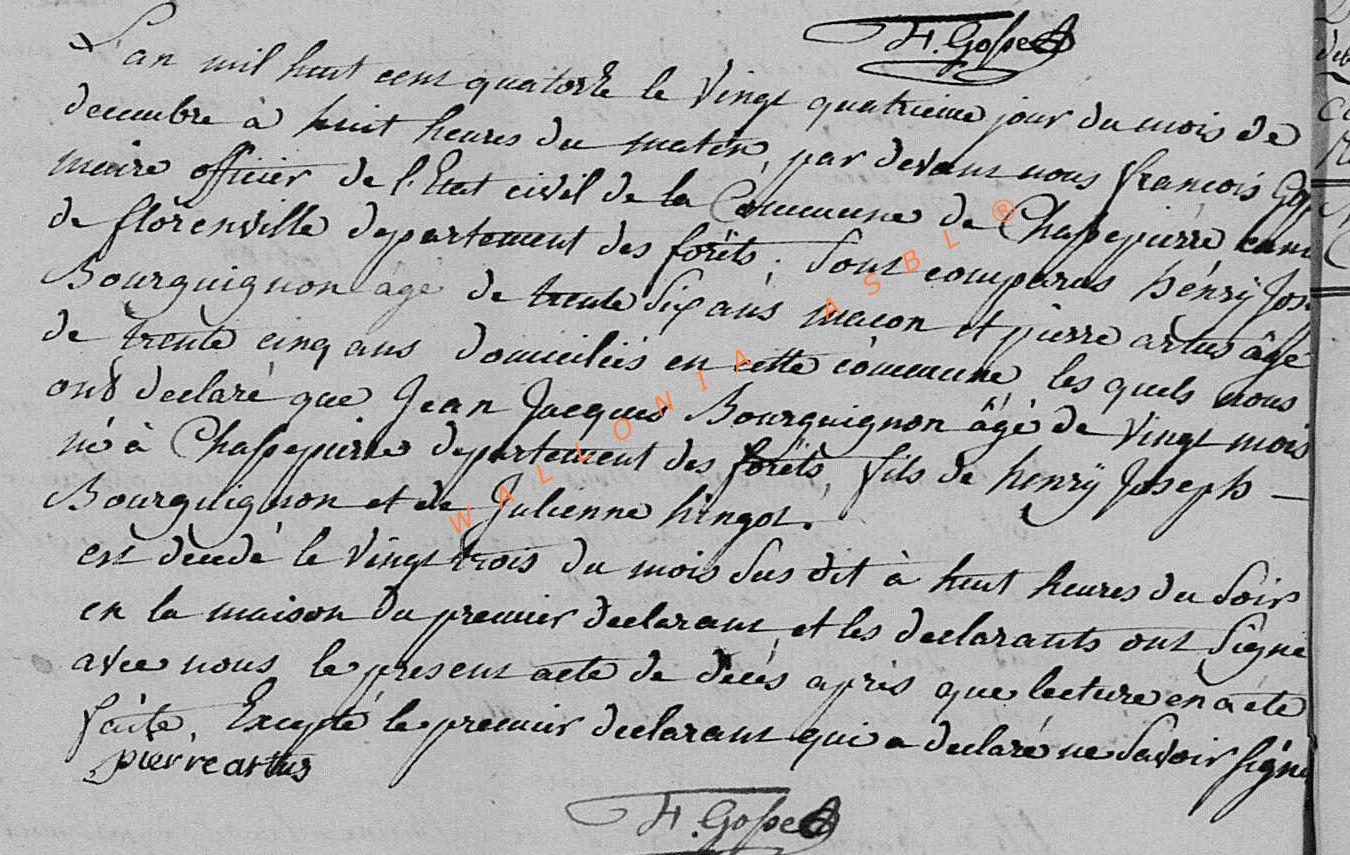 F. Gosset
L'an mil huit cent quatorze le vingt quatrieme jour du mois de
decembre à huit heures du matin, par devant nous francois Goss
maire officier de l'Etat civil de la Commune de Chassepierre, cant
de florenville departement des forêts; Sont comparus hénry Jos
Bourguignon âgé de trente Six ans macon et pierre artus âgé
de trente cinq ans domiciliés en cette commune, les quels nous
ont declaré que Jean Jacques Bourguignon âgé de vingt mois
né à Chassepierre departement des forêts, fils de henry Joseph –
Bourguignon et de Julienne hingot.
est decedé le vingt trois du mois Sus dit à huit heures du Soir
en la maison du premier declarant, et les declarants ont Signé
avec nous le present acte de decés aprés que lecture en a été
faite, Excepté le premier declarant qui a declaré ne Savoir signe
pierre artus
F. Gosset
WALLONIA ASBL ®